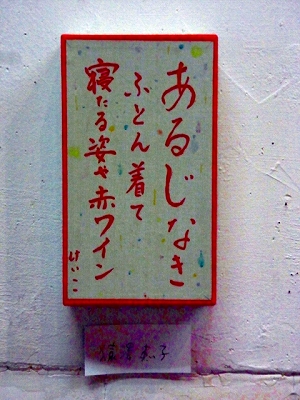 あるじなき
ふとん着て
寝たる姿や赤ワイン
けいこ